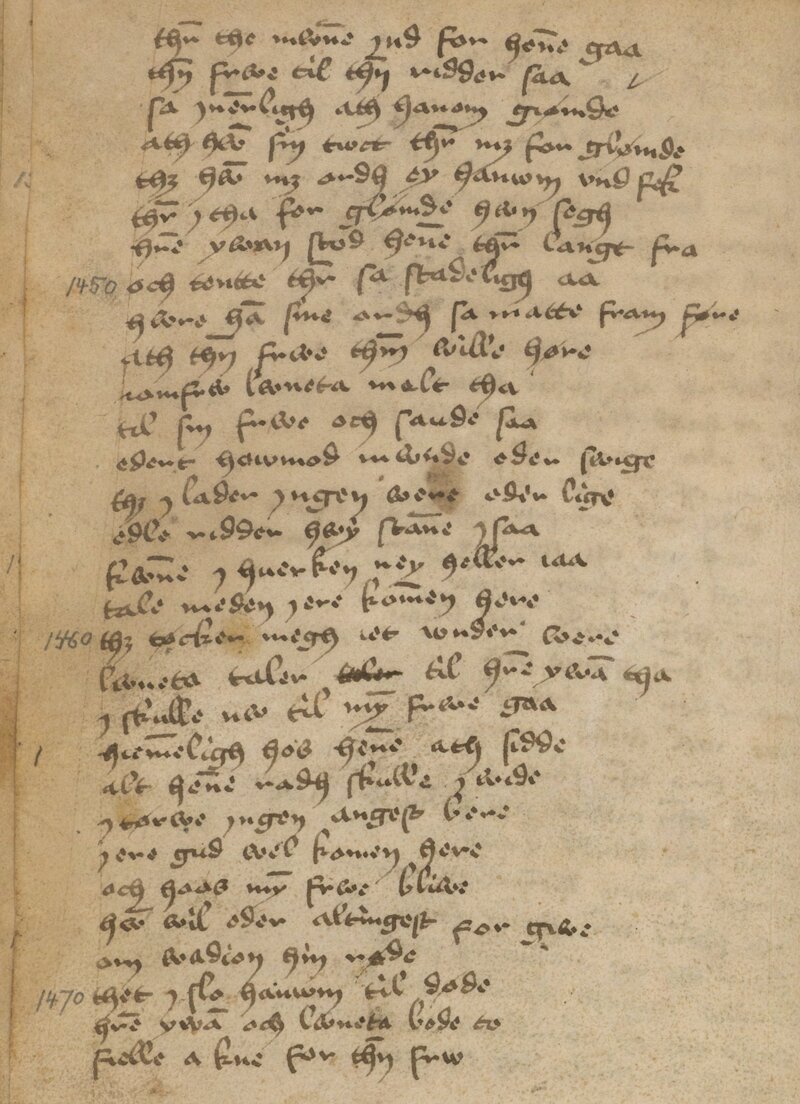 thr̄ the mwn̄e ynd for hen̄e gaa
thn̄ frwe til thn̄ ridder saa
sa ynērligh ath hanom grømde
ath hwē sin twct thr̄ mꝫ for glømde
thꝫ hwē mꝫ ordh ey hanwm vnd fek
thr̄ y tha for glømde hwn segh
hr̄e ywan stod hen̄e thr̄ langt fra
1450 och tentte thr̄ sa stadeligh aa
hwre hā sine ordh sa matte fram føre
ath thn̄ frwe thm̄ wille høre
iomfrw lwneta melt tha
til sin frwe och saude saa
edert howmod mwnde eder swige
thꝫ y lader yngen were eder lige
edle ridder hwy stān̄e y saa
kwn̄e y huerken ney heller iaa
tale meden y ere kom̄en here
1460 thꝫ tøcker megh iet wnder were
lwneta taler til hr̄e ywā tha
y skulle nw til my̅ frwe gaa
hiem̄eligh hos hen̄e ath sidde
alt hen̄e radh skulle y wide
y tørwe yngen angest bere
y ere gud wel komen here
och hoos my̅ frwe bliwe
hwē wil eder altingest for giwe
om wadion hin røde
1470 thet y slo hanwm til døde
hr̄e ywā och lwneta bode to
fielle a kne for thn̄ frw